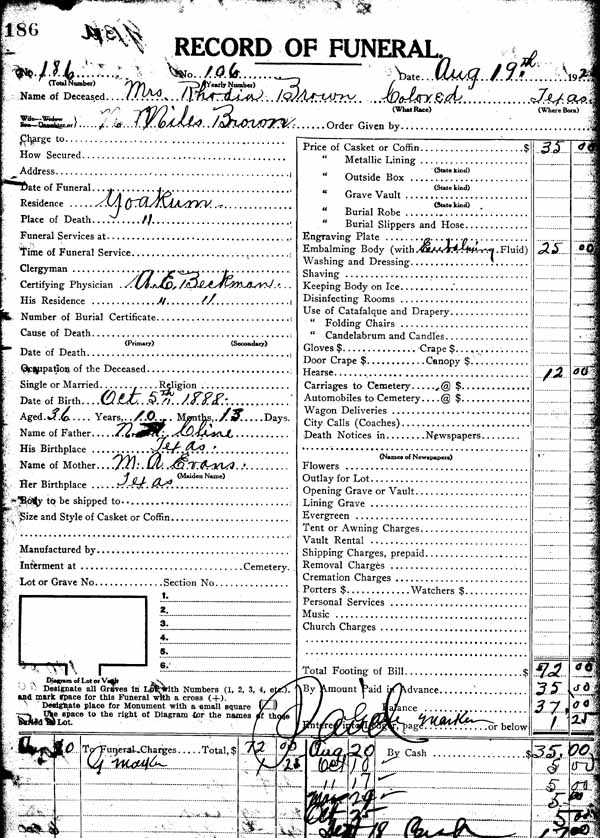 186
RECORD OF FUNERAL.
No. 186 No. 106 Date Aug 19th 192
(Total Number) (Yearly Number)
Name of Deceased Mrs Rhodia Brown Colored Texas
(What Race) (Where Born)
Wife—Widow
Son—Daughter of Miles Brown Order Given by
Charge to
How Secured
Address
Date of Funeral
Residence Yoakum
Place of Death "
Funeral Services at
Time of Funeral Service
Clergyman
Certifying Physician A.E. Beckman
His Residence " "
Number of Burial Certificate
Cause of Death
(Primary) (Secondary)
Date of Death
Occupation of the Deceased
Single or Married Religion
Date of Birth Oct 5th 1888
Aged 36 Years, 10 Months, 13 Days.
Name of Father Cline
His Birthplace Texas
Name of Mother M. A Evans
(Maiden Name)
Her Birthplace Texas
Body to be shipped to
Size and Style of Casket or Coffin
Manufactured by
Interment at Cemetery.
Lot or Grave No. Section No.
1.
2.
3.
4.
5.
6.
Diagram of Lot or Vault
Designate all Graves in Lot with Numbers (1, 2, 3, 4, etc.),
and mark space for this Funeral with a cross (+).
Designate place for Monument with a small square
The space to the right of Diagram for the names of those
buried in Lot.
Price of Casket or Coffin $ 35 00
" Metallic Lining
(State kind)
" Outside Box
(State kind)
" Grave Vault
(State kind)
" Burial Robe
" Burial Slippers and Hose
Engraving Plate
Embalming Body (with Embalming Fluid) 25 00
Washing and Dressing
Shaving
Keeping Body on Ice
Disinfecting Rooms
Use of Catafalque and Drapery
" Folding Chairs
" Candelabrum and Candles
Gloves $ Crape $
Door Crape $ Canopy $
Hearse 12 00
Carriages to Cemetery @ $
Automobiles to Cemetery @ $
Wagon Deliveries
City Calls (Coaches)
Death Notices in Newspapers
(Names of Newspapers)
Flowers
Outlay for Lot
Opening Grave or Vault
Lining Grave
Evergreen
Tent or Awning Charges
Vault Rental
Shipping Charges, prepaid
Removal Charges
Cremation Charges
Porters $ Watchers $
Personal Services
Music
Church Charges
Total Footing of Bill $ 72 00
By Amount Paid in Advance 35 00
Balance 37 00
Entered into Ledger, page marker or below 1 25
Aug 20 To Funeral Charges Total, $ 72 00
marker 1 25
Aug 20 By Cash $ 35.00
Oct 10
11 17 5 00
5 00
5 00
Sept 18